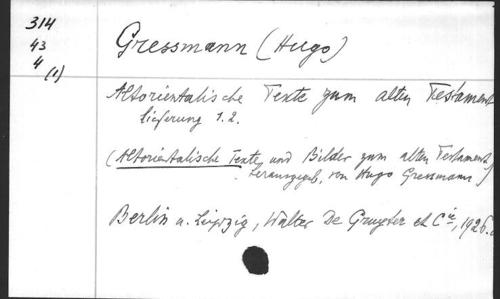 314
43
4
(1)
Gressmann (Hugo)
Altorientalische Texte zum alten Testament
Lieferung 1.2.
(Altorientalische Texte und Bilder zum alten Testament
herausgegeb. von Hugo Gressmann.)
Berlin u. Leipzig, Walter De Gruyter et Cie, 1926.